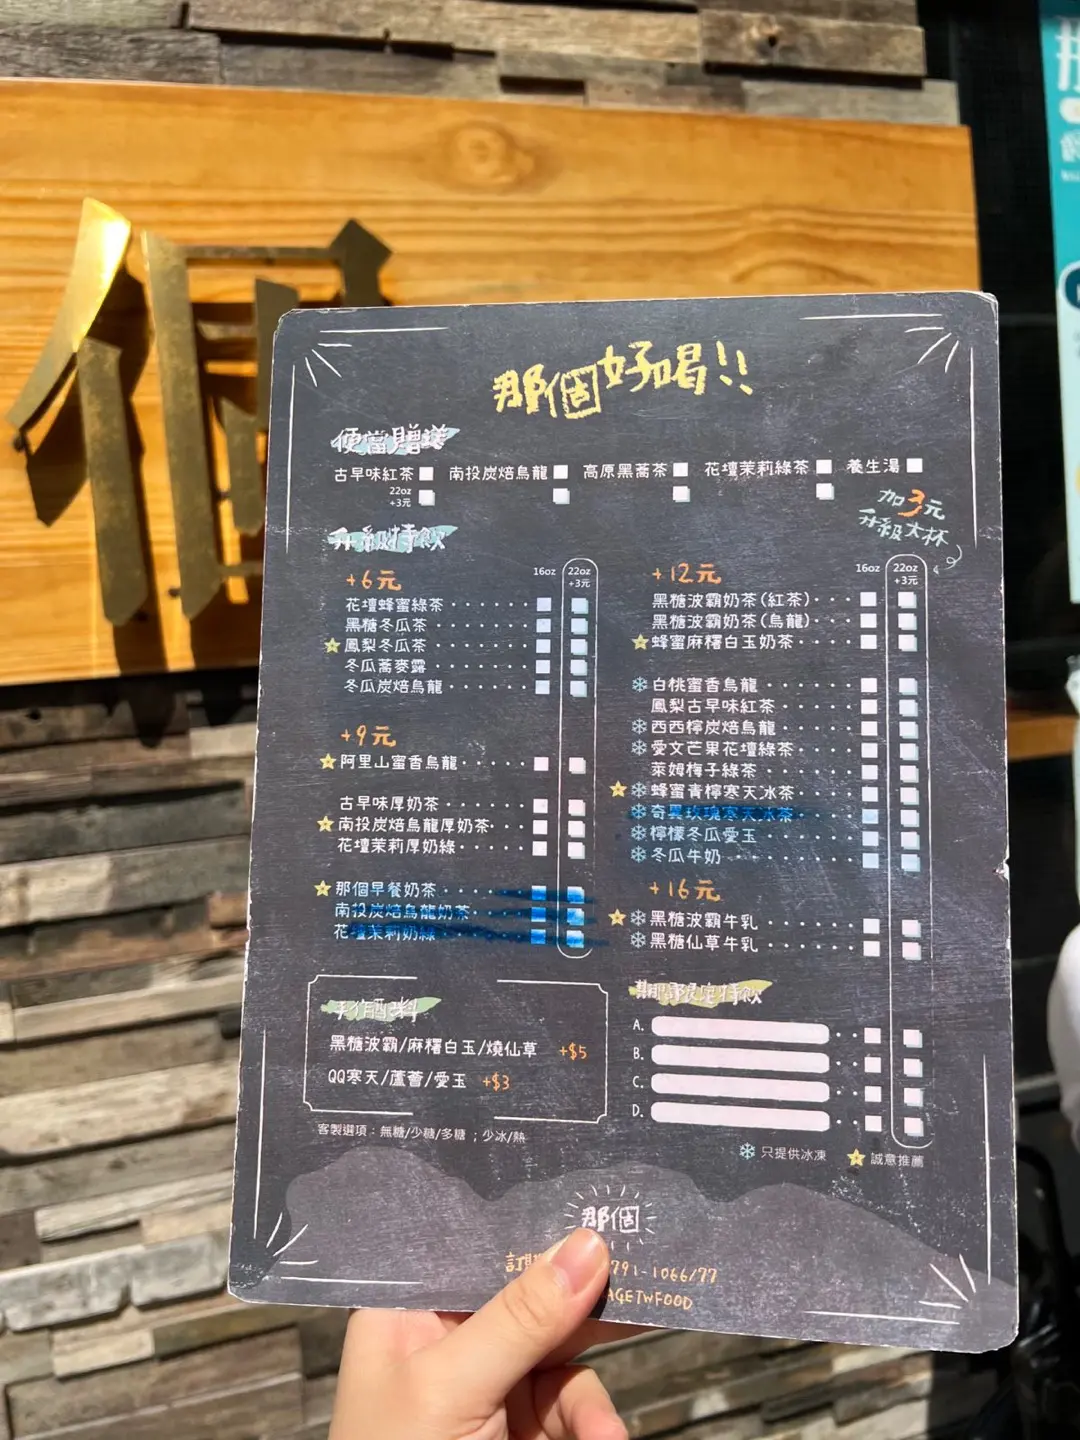 個
那個好喝!!
便當贈送
古早味紅茶 南投炭焙烏龍 高原黑蕎茶 花壇茉莉綠茶 養生湯
22oz
+3元
加3元
升級大杯
升級特飲
+6元 16oz 22oz +3元
花壇蜂蜜綠茶
黑糖冬瓜茶
鳳梨冬瓜茶
冬瓜蕎麥露
冬瓜炭焙烏龍
+9元
阿里山蜜香烏龍
古早味厚奶茶
南投炭焙烏龍厚奶茶
花壇茉莉厚奶綠
那個早餐奶茶
南投炭焙烏龍奶茶
花壇茉莉奶綠
+12元 16oz 22oz +3元
黑糖波霸奶茶(紅茶)
黑糖波霸奶茶(烏龍)
蜂蜜麻糬白玉奶茶
白桃蜜香烏龍
鳳梨古早味紅茶
西西檸炭焙烏龍
愛文芒果花壇綠茶
萊姆梅子綠茶
蜂蜜青檸寒天冰茶
奇異玫瑰寒天冰茶
檸檬冬瓜愛玉
冬瓜牛奶
+16元
黑糖波霸牛乳
黑糖仙草牛乳
手作配料
黑糖波霸/麻糬白玉/燒仙草 +$5
QQ寒天/蘆薈/愛玉 +$3
客製選項：無糖/少糖/多糖 ；少冰/熱
期間限定特飲
A.
B.
C.
D.
只提供冰凍 誠意推薦
那個
訂 791-1066/77
AGETWFOOD